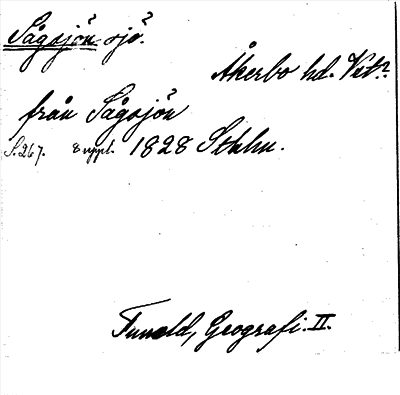 Sågsjön, sjö.
Åkerbo hd. Vstm.
från Sågsjön
S. 267. 8 uppl. 1828 Sthlm.
Tuneld, Geografi. II.